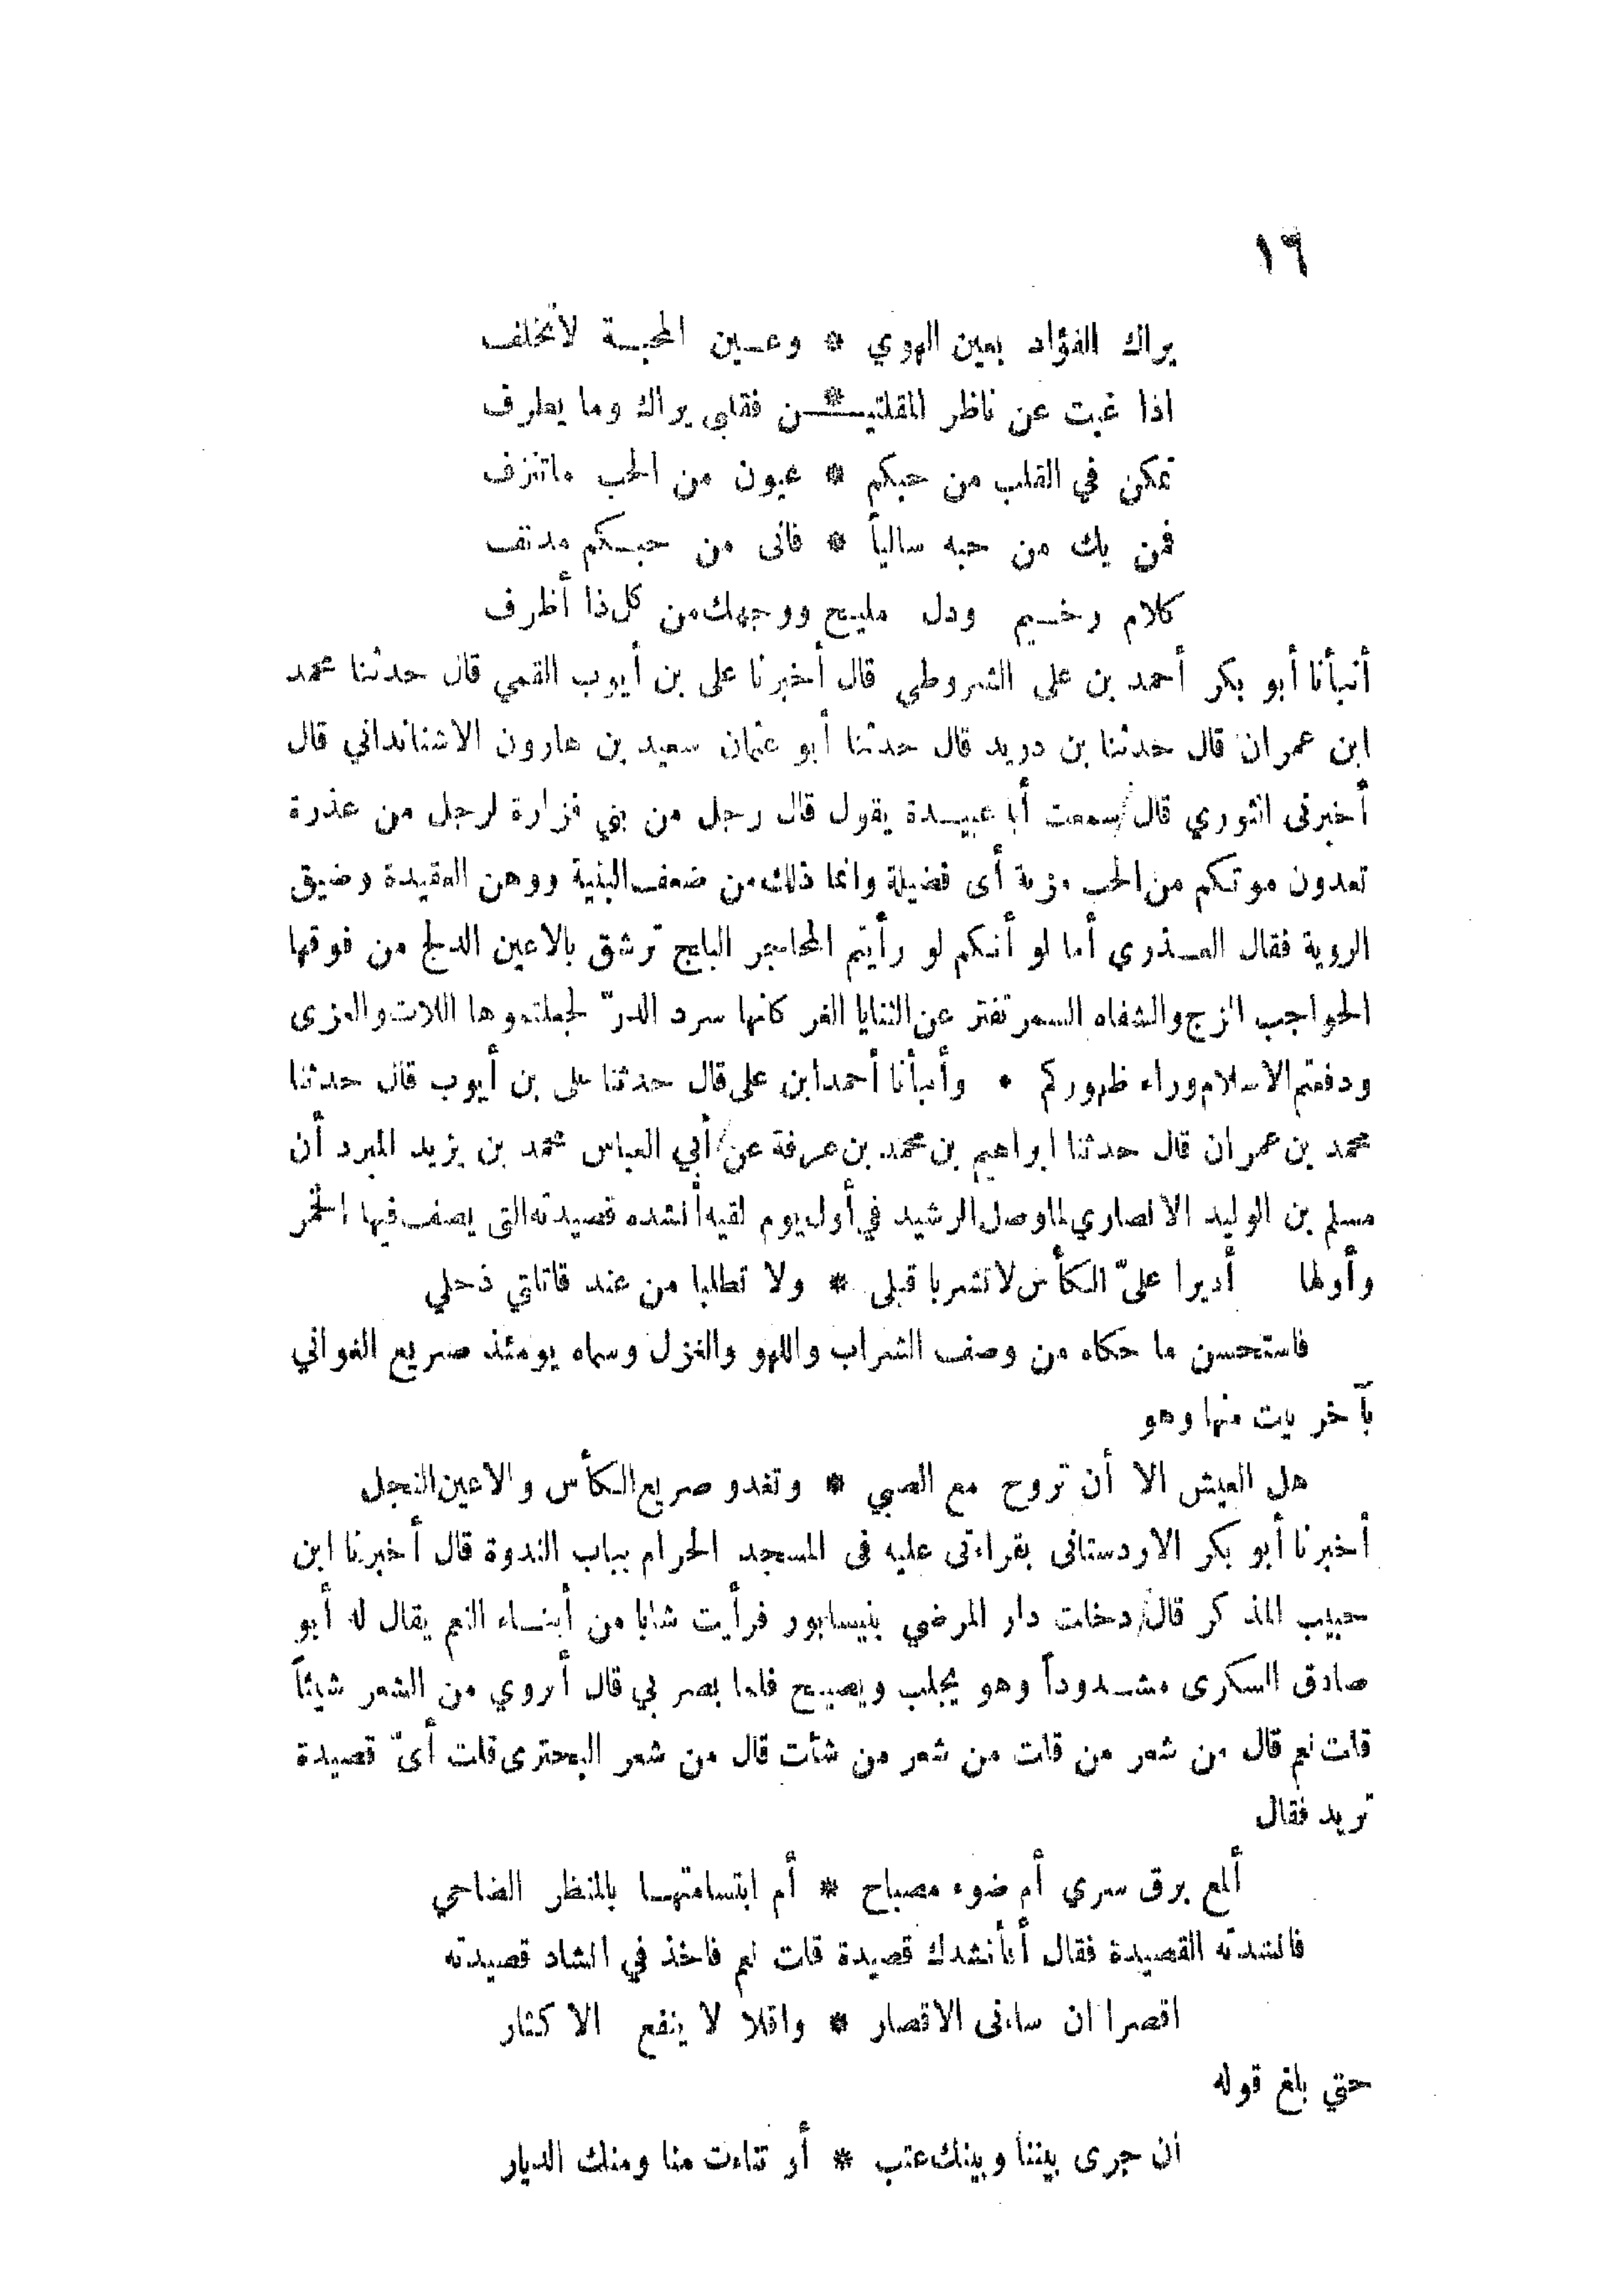 ١٦
يراك الفؤاد بعين الهوي * وعين المحبة لاتخلف
اذا غبت عن ناظر المقلتيـ*ـن فقلبي يراك وما يطرف
تمكن في القلب من حبكم * عيون من الحب ماتنزف
فمن يك من حبه سالياً * فانى من حبكم مدنف
كلام رخيم ودل مليح ووجهك من كل ذا أظرف
أنبأنا أبو بكر أحمد بن على الشروطي قال أخبرنا على بن أيوب القمي قال حدثنا محمد
ابن عمران قال حدثنا بن دريد قال حدثنا أبو عثمان سعيد بن هارون الاشنانداني قال
أخبرنى الثوري قال سمعت أبا عبيدة يقول قال رجل من بني فزارة لرجل من عذرة
تعدون موتكم من الحب مزية أى فضيلة وانما ذلك من ضعف البنية ووهن العقيدة وضيق
الروية فقال العذري أما لو أنكم لو رأيتم المحاجر البلج ترشق بالاعين الدلج من فوقها
الحواجب الزج والشفاه السمر تفتر عن الثنايا الغر كانها سرد الدرّ لجعلتموها اللات والعزى
ودفعتم الاسلام وراء ظهوركم • وأنبأنا أحمد ابن على قال حدثنا على بن أيوب قال حدثنا
محمد بن عمران قال حدثنا ابراهيم بن محمد بن عرفة عن أبي العباس محمد بن يزيد المبرد أن
مسلم بن الوليد الانصاري لما وصل الرشيد في أول يوم لقيه أنشده قصيدته التى يصف فيها الخمر
وأولها أديرا علىّ الكأس لا تشربا قبلى * ولا تطلبا من عند قاتلتي ذحلي
فاستحسن ما حكاه من وصف الشراب واللهو والغزل وسماه يومئذ صريع الغواني
بآخر بيت منها وهو
هل العيش الا أن تروح مع الصبي * وتغدو صريع الكأس والاعين النجل
أخبرنا أبو بكر الاردستانى بقراءتى عليه فى المسجد الحرام بباب الندوة قال أخبرنا ابن
حبيب المذكر قال دخلت دار المرضي بنيسابور فرأيت شابا من أبناء النعم يقال له أبو
صادق السكرى مشدوداً وهو يجلب ويصيح فلما بصر بي قال أتروي من الشعر شيئاً
قلت نعم قال من شعر من قلت من شعر من شئت قال من شعر البحترى قلت أىّ قصيدة
تريد فقال
ألمع برق سري أم ضوء مصباح * أم ابتسامتها بالمنظر الضاحي
فانشدته القصيدة فقال أفأنشدك قصيدة قلت نعم فاخذ في انشاد قصيدته
اقصرا ان ساءنى الاقصار * واقلا لا ينفع الا كثار
حتي بلغ قوله
ان جرى بيننا وبينك عتب * أو تناءت منا ومنك الديار